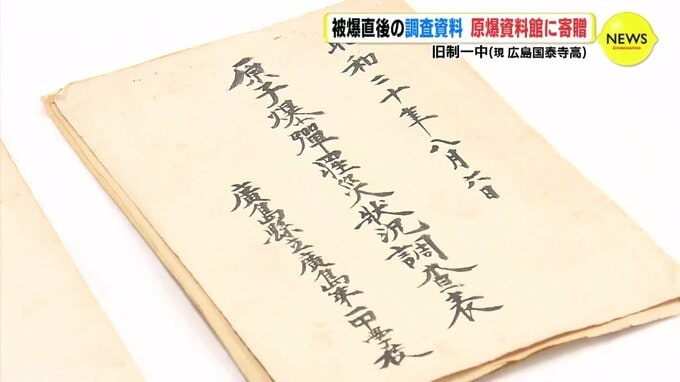 被爆直後の調査資料 原爆資料館に寄贈
旧制一中(現 広島国泰寺高)
NEWS
昭和二十年八月六日
原子爆彈罹災狀況調查表
廣島縣立廣島第一中學校